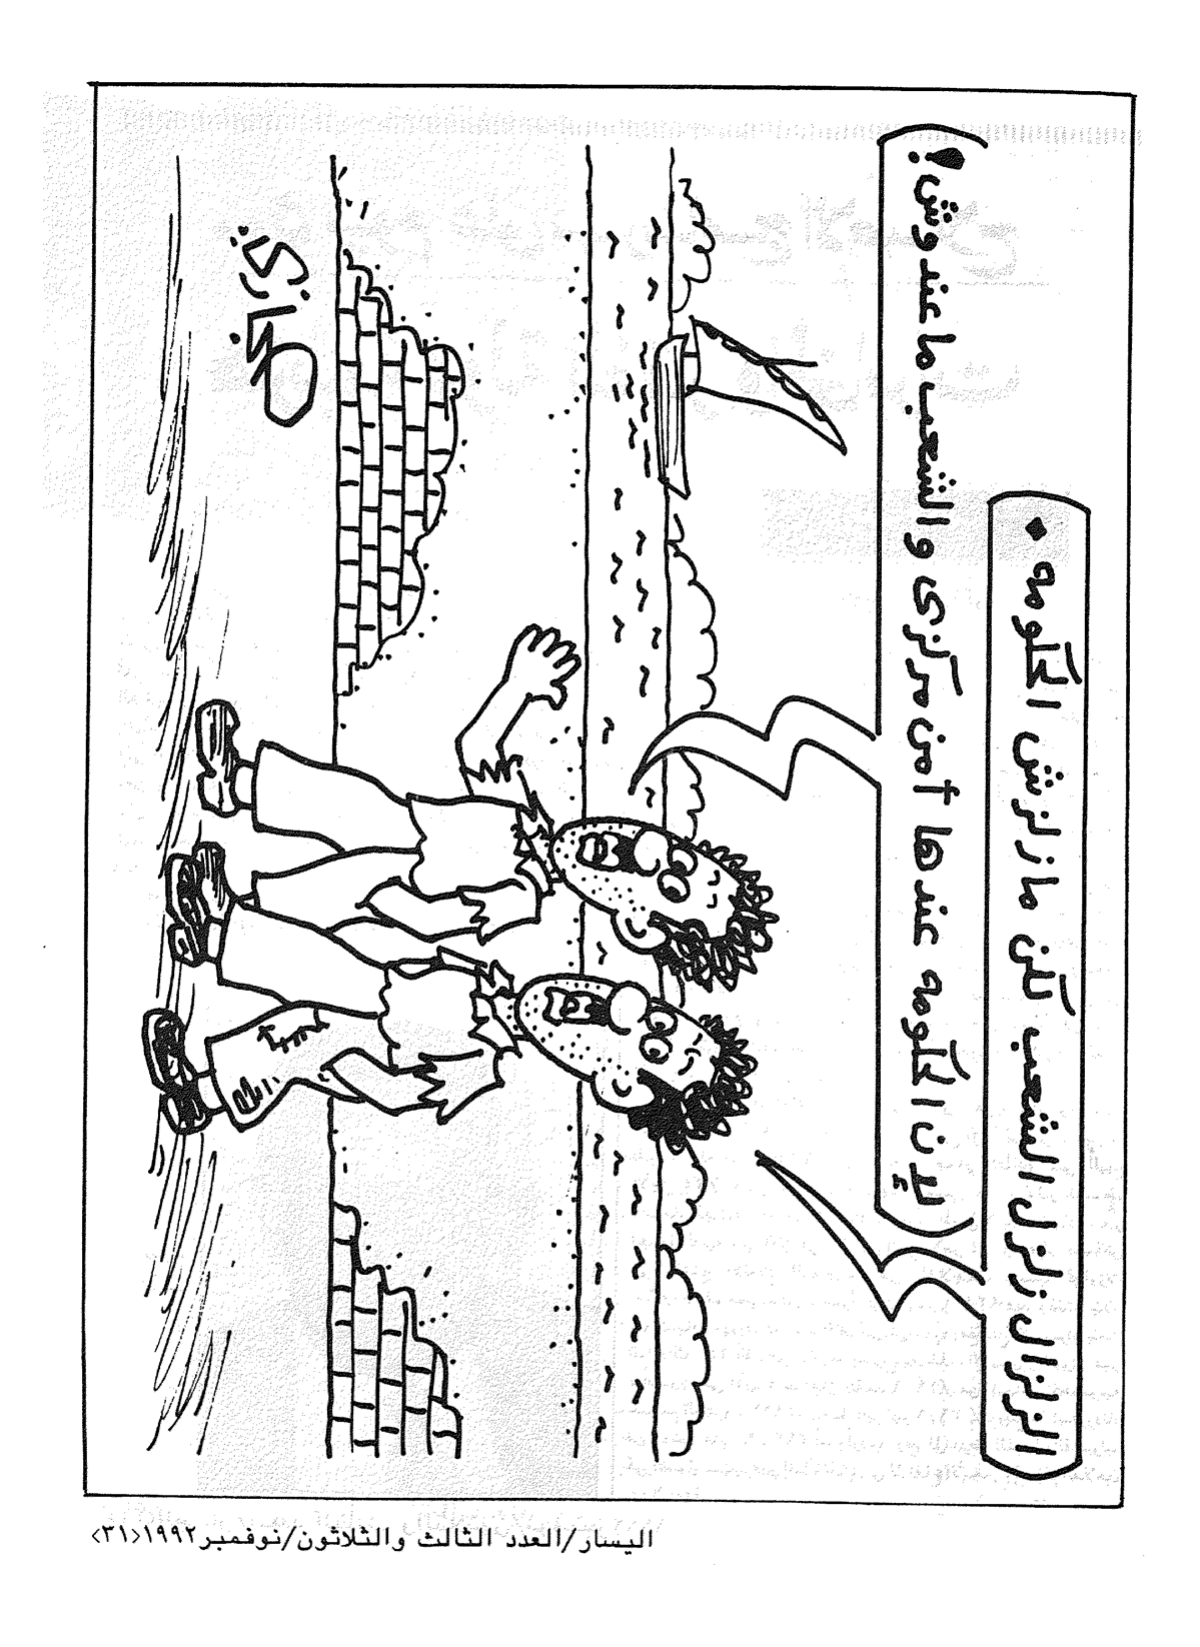 الزلزال زلزل الشعب لكن مازلزلش الحكومه .
لإن الحكومه عندها أمن مركزى والشعب ماعندوش !
حجازى
اليسار/العدد الثالث والثلاثون/نوفمبر١٩٩٢<٣١>